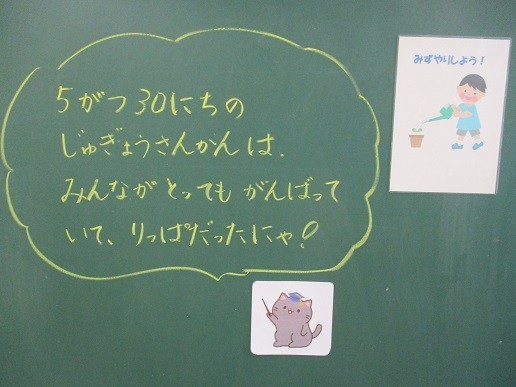 5がつ30にちの
じゅぎょうさんかんは.
みんながとってもがんばって
いて、りっぱだったにゃ!
みずやりしよう!